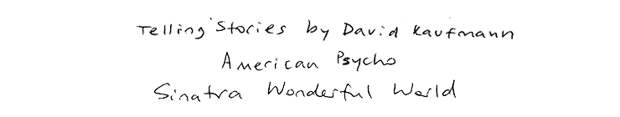 Telling Stories by David Kaufmann
American Psycho
Sinatra Wonderful World